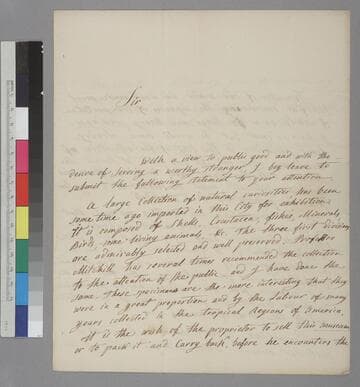 Sir
With a view to public good and with the
desire of serving a worthy stranger I beg leave to
submit the following statement to your attention
A large Collection of natural curiosities has been
some time ago imported in this City for exhibition.
It is composed of Shells, Crustacea, fishes Minerals,
Birds, some living animals, &c. The three first divisions
are admirably selected and well preserved. Professor
Mitchill has several times recommended the collection
to the attention of the public and I have done the
same. These specimens are the more interesting that they
were in a great proportion and by the labour of many
years collected in the tropical Regions of America.
It is the wish of the proprietor to sell this museum
or to pack it and Carry back before he encounters the